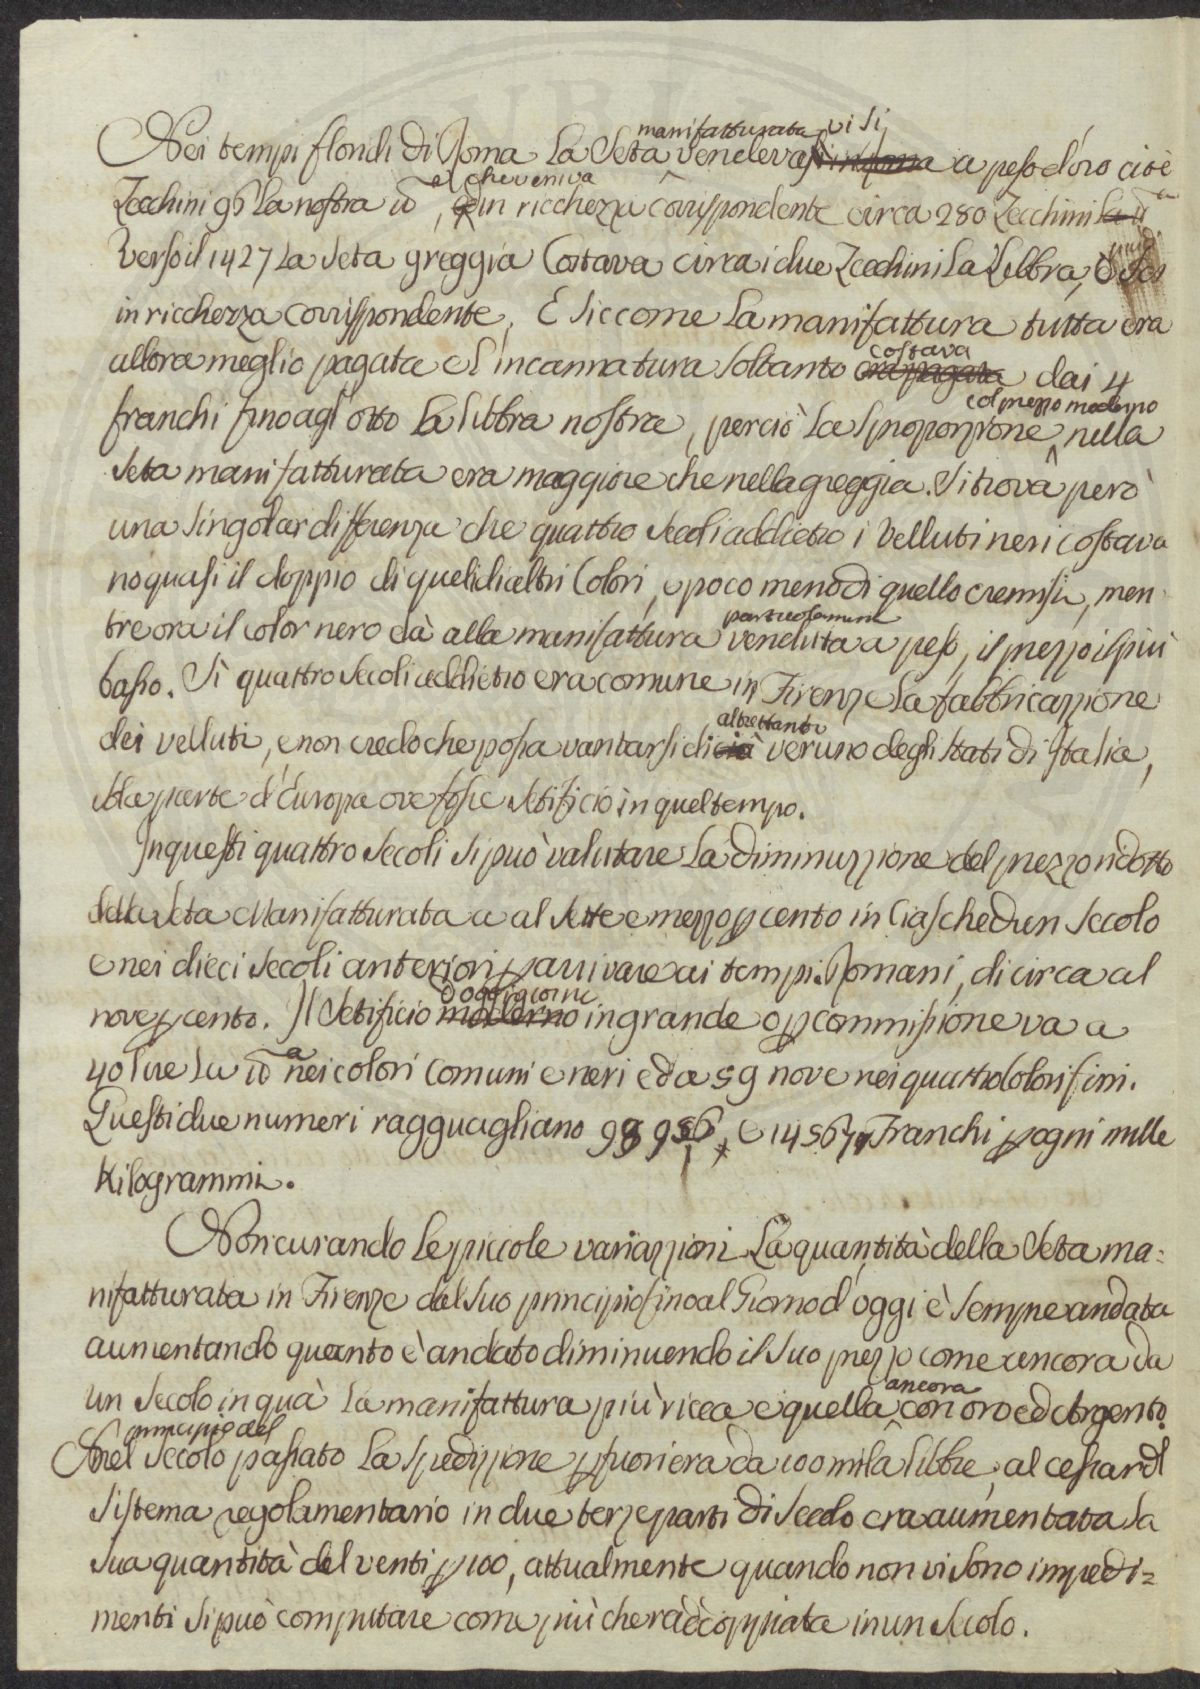 Nei tempi floridi di Roma la Seta manifatturata vi si vendeva a peso d'oro cioè
Zecchini 95 la nostra lb, el che veniva in ricchezza corrispondente circa 280 Zecchini la
Verso il 1427 la Seta greggia Costava circa i due Zecchini la Libbra, o sei
in ricchezza corrispondente. E siccome la manifattura tutta era
allora meglio pagata e l'incannatura soltanto costava dai 4
franchi fino agl'otto la libbra nostra, perciò la sproporzione col prezzo moderno nella
Seta manifatturata era maggiore che nella greggia. Si trova però
una singolar differenza che quattro Secoli addietro i Velluti neri costava
no quasi il doppio di queli di altri Colori, e poco meno di quello cremisi, men
tre ora il color nero dà alla manifattura particolarmente venduta a peso, il prezzo il più
basso. Sì quattro Secoli addietro era comune in Firenze la fabbricazzione
dei velluti, e non credo che possa vantarsi di altrettanto veruno degli Stati di Italia,
o la parte d'Europa ove fosse Setificio in quel tempo.
In questi quattro Secoli si può valutare la diminuzzione del prezzo ridotto
della Seta Manifatturata a al Sette e mezzo p cento in Ciaschedun Secolo
e nei dieci Secoli anteriori p arrivare ai tempi Romani, di circa al
nove p cento. Il Setificio d'oggigiorno in grande o p commissione va a
40 lire la lb a nei colori Comuni e neri ed a 59 nove nei quattro Colori fini.
Questi due numeri ragguagliano 98956, e 14567 Franchi p ogni mille
Kilogrammi.
Non curando le piccole variazzioni La quantità della Seta ma=
nifatturata in Firenze dal suo principio fino al Giorno d'oggi è sempre andata
aumentando quanto è andato diminuendo il suo prezzo come ancora da
un Secolo in quà la manifattura più ricca e quella ancora con oro ed Argento.
Nel principio del Secolo passato la Spedizzione p fuori era da 100 mila libbre, al cessar del
Sistema regolamentario in due terze parti di Secolo era aumentata la
sua quantità del venti p 100, attualmente quando non vi sono impedi=
menti si può computare come più che radoppiata in un Secolo.